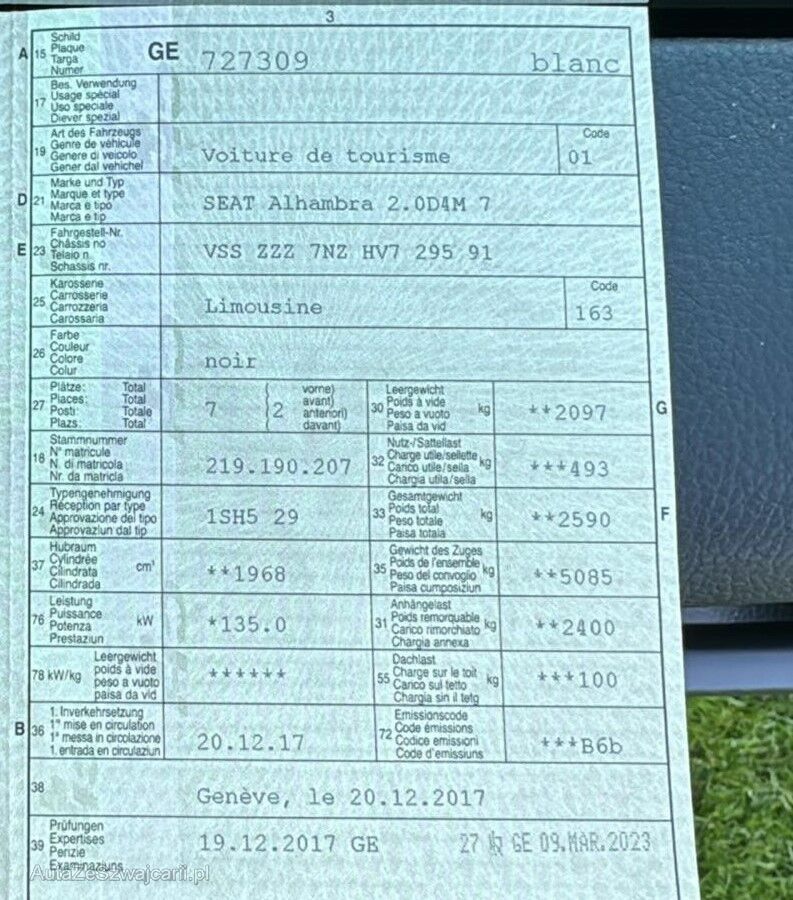 3
A 15 Schild
Plaque
Targa
Numer
GE 727309 blanc
17 Bes. Verwendung
Usage spécial
Uso speciale
Diever spezial
19 Art des Fahrzeugs
Genre de véhicule
Genere di veicolo
Gener dal vehichel
Voiture de tourisme
Code
01
D 21 Marke und Typ
Marque et type
Marca e tipo
Marca e tip
SEAT Alhambra 2.0D4M 7
E 23 Fahrgestell-Nr.
Châssis no
Telaio n.
Schassis nr.
VSS ZZZ 7NZ HV7 295 91
25 Karosserie
Carrosserie
Carrozzeria
Carossaria
Limousine
Code
163
26 Farbe
Couleur
Colore
Colur
noir
27 Plätze: Total
Places: Total
Posti: Totale
Plazs: Total
7 ( 2 vorne)
avant)
anteriori)
davant)
30 Leergewicht
Poids à vide
Peso a vuoto
Paisa da vid
kg
**2097
G
18 Stammnummer
N° matricule
N. di matricola
Nr. da matricla
219.190.207
32 Nutz-/Sattellast
Charge utile/sellette
Carico utile/sella
Chargia utila/sella
kg
***493
24 Typengenehmigung
Réception par type
Approvazione del tipo
Approvaziun dal tip
1SH5 29
33 Gesamtgewicht
Poids total
Peso totale
Paisa totala
kg
**2590
F
37 Hubraum
Cylindrée
Cilindrata
Cilindrada
cm³
**1968
35 Gewicht des Zuges
Poids de l'ensemble
Peso del convoglio
Paisa cumposiziun
kg
**5085
76 Leistung
Puissance
Potenza
Prestaziun
kW
*135.0
31 Anhängelast
Poids remorquable
Carico rimorchiato
Chargia annexa
kg
**2400
78 kW/kg Leergewicht
poids à vide
peso a vuoto
paisa da vid
******
55 Dachlast
Charge sur le toit
Carico sul tetto
Chargia sin il tetg
kg
***100
B 36 1. Inverkehrsetzung
1re mise en circulation
1a messa in circolazione
1. entrada en circulaziun
20.12.17
72 Emissionscode
Code émissions
Codice emissioni
Code d'emissiuns
***B6b
38
Genève, le 20.12.2017
39 Prüfungen
Expertises
Perizie
Examinaziuns
19.12.2017 GE
27 GE 09.MAR.2023
AutaZeSzwajcarii.pl